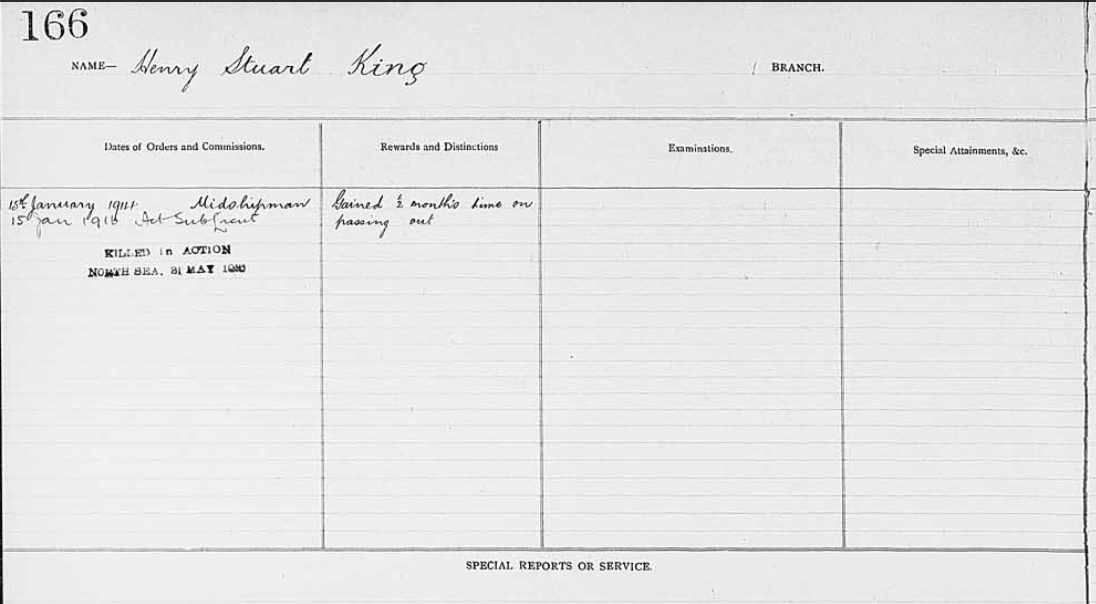 166
NAME— Henry Stuart King BRANCH.
Dates of Orders and Commissions. Rewards and Distinctions Examinations. Special Attainments, &c.
15th January 1914. Midshipman Gained ½ month's time on
15 Jan 1916 Act SubLieut passing out
KILLED in ACTION
NORTH SEA. 31 MAY 1916
SPECIAL REPORTS OR SERVICE.